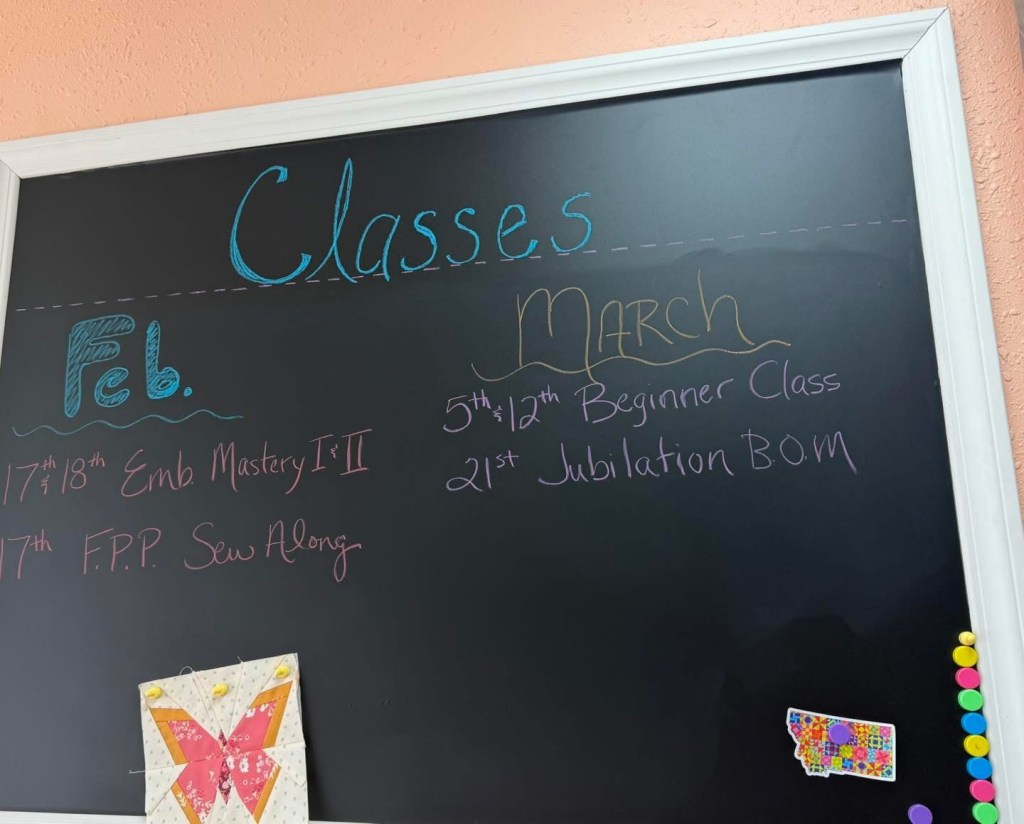 Classes
Feb.
17th & 18th Emb. Mastery I & II
17th F.P.P. Sew Along
MARCh
5th & 12th Beginner Class
21st Jubilation B.O.M